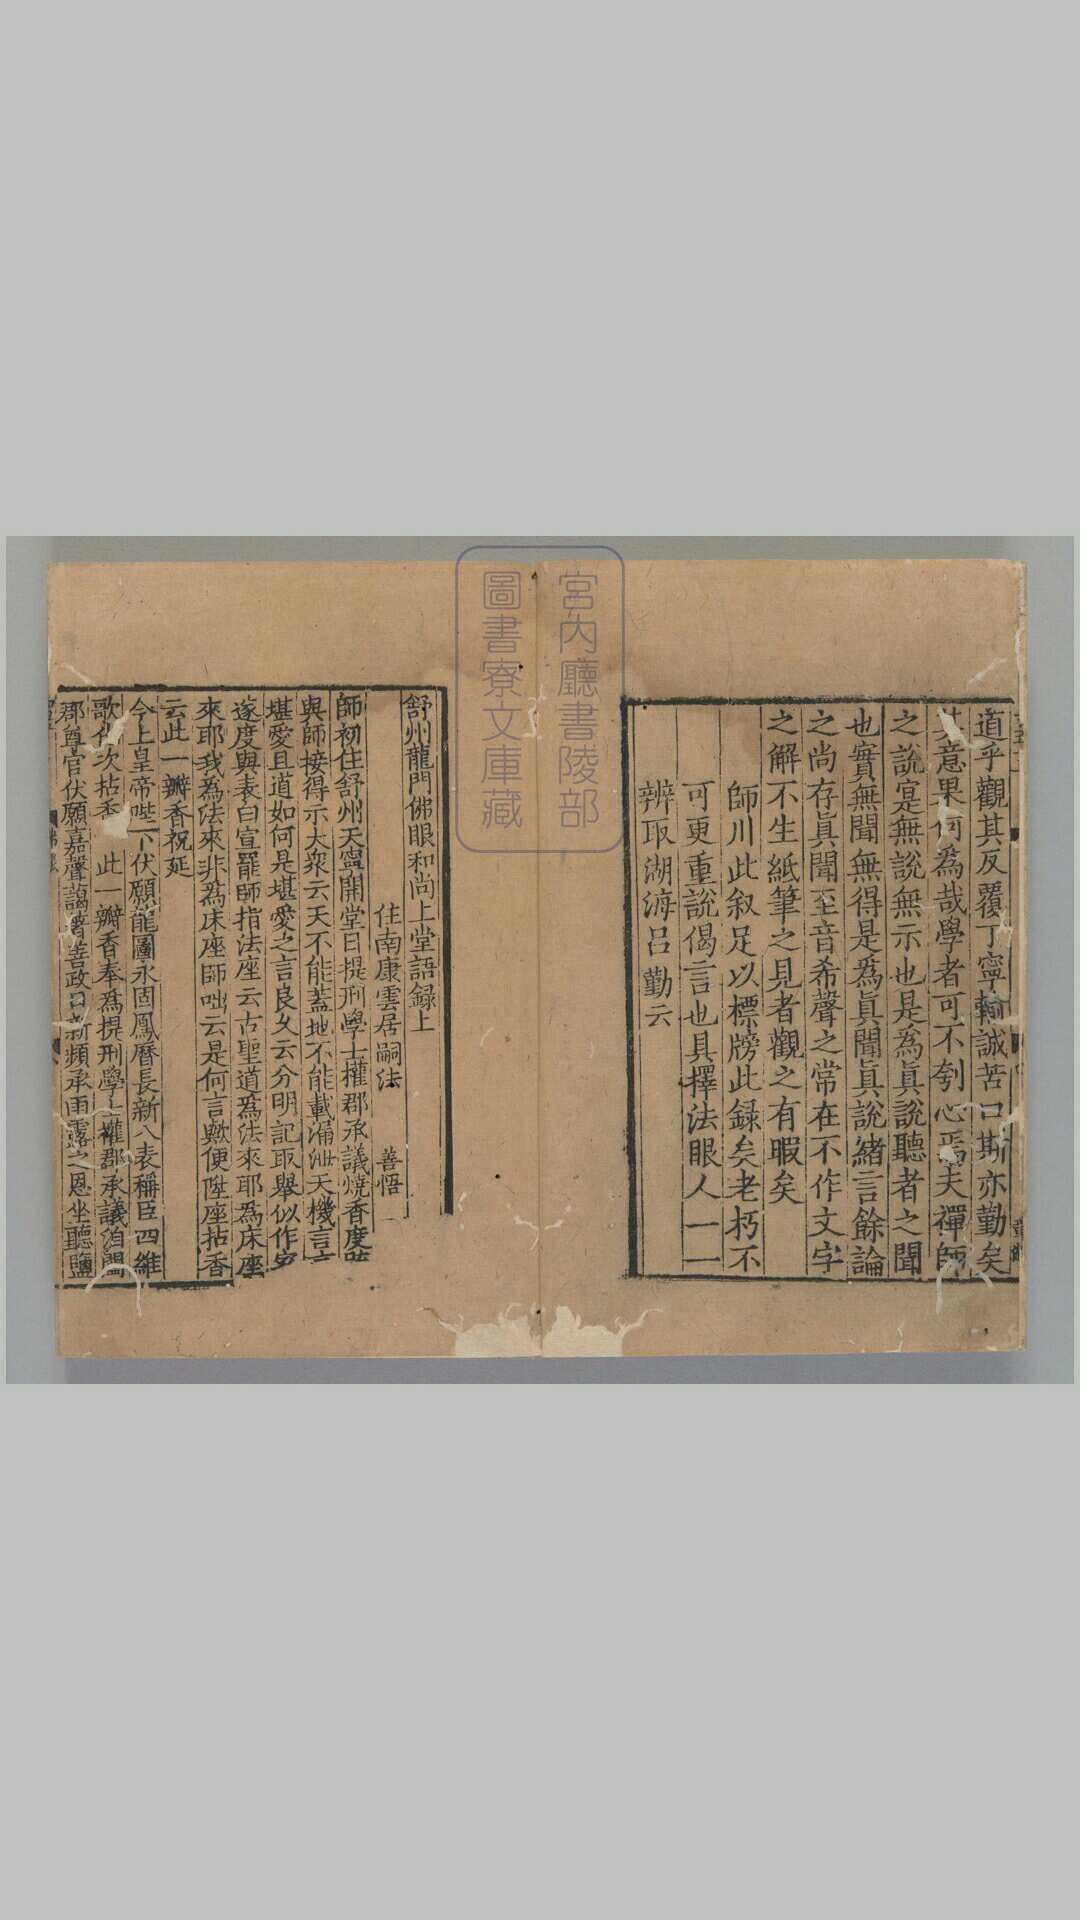 道乎觀其反覆丁寧輸誠苦口斯亦勤矣
其意果何為哉學者可不刳心焉夫禪師
之說寔無說無示也是為眞說聽者之聞
也實無聞無得是為眞聞眞說緒言餘論
之尚存眞聞至音希聲之常在不作文字
之解不生紙筆之見者觀之有暇矣
師川此叙足以標牓此録矣老朽不
可更重說偈言也具擇法眼人一一
辨取湖海呂勤云
宮内廳書陵部
圖書寮文庫藏
舒州龍門佛眼和尚上堂語録上
住南康雲居嗣法 善悟
師初住舒州天寧開堂日提刑學士權郡承議燒香度
與師接得示大衆云天不能蓋地不能載漏泄天機言
堪愛且道如何是堪愛之言良久云分明記取舉似作家
遂度與表白宣罷師指法座云古聖道為法來耶為床座
來耶我為法來非為床座師咄云是何言歟便陞座拈香
云此一瓣香祝延
今上皇帝陛下伏願龍圖永固鳳曆長新八表稱臣四維
歌化次拈香 此一瓣香奉為提刑學士權郡承議洎闔
郡尊官伏願嘉聲藹著善政日新頻承雨露之恩坐聽鹽